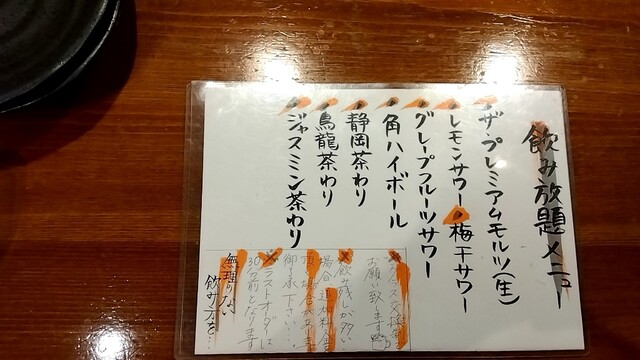 飲み放題メニュー
ザ・プレミアムモルツ(生)
レモンサワー 梅干サワー
グレープフルーツサワー
角ハイボール
静岡茶わり
烏龍茶わり
ジャスミン茶わり
お願い致します
飲み残しが多い
場合
御了承下さい…
ラストオーダーは
30分前となります
無理のない
飲み方を…